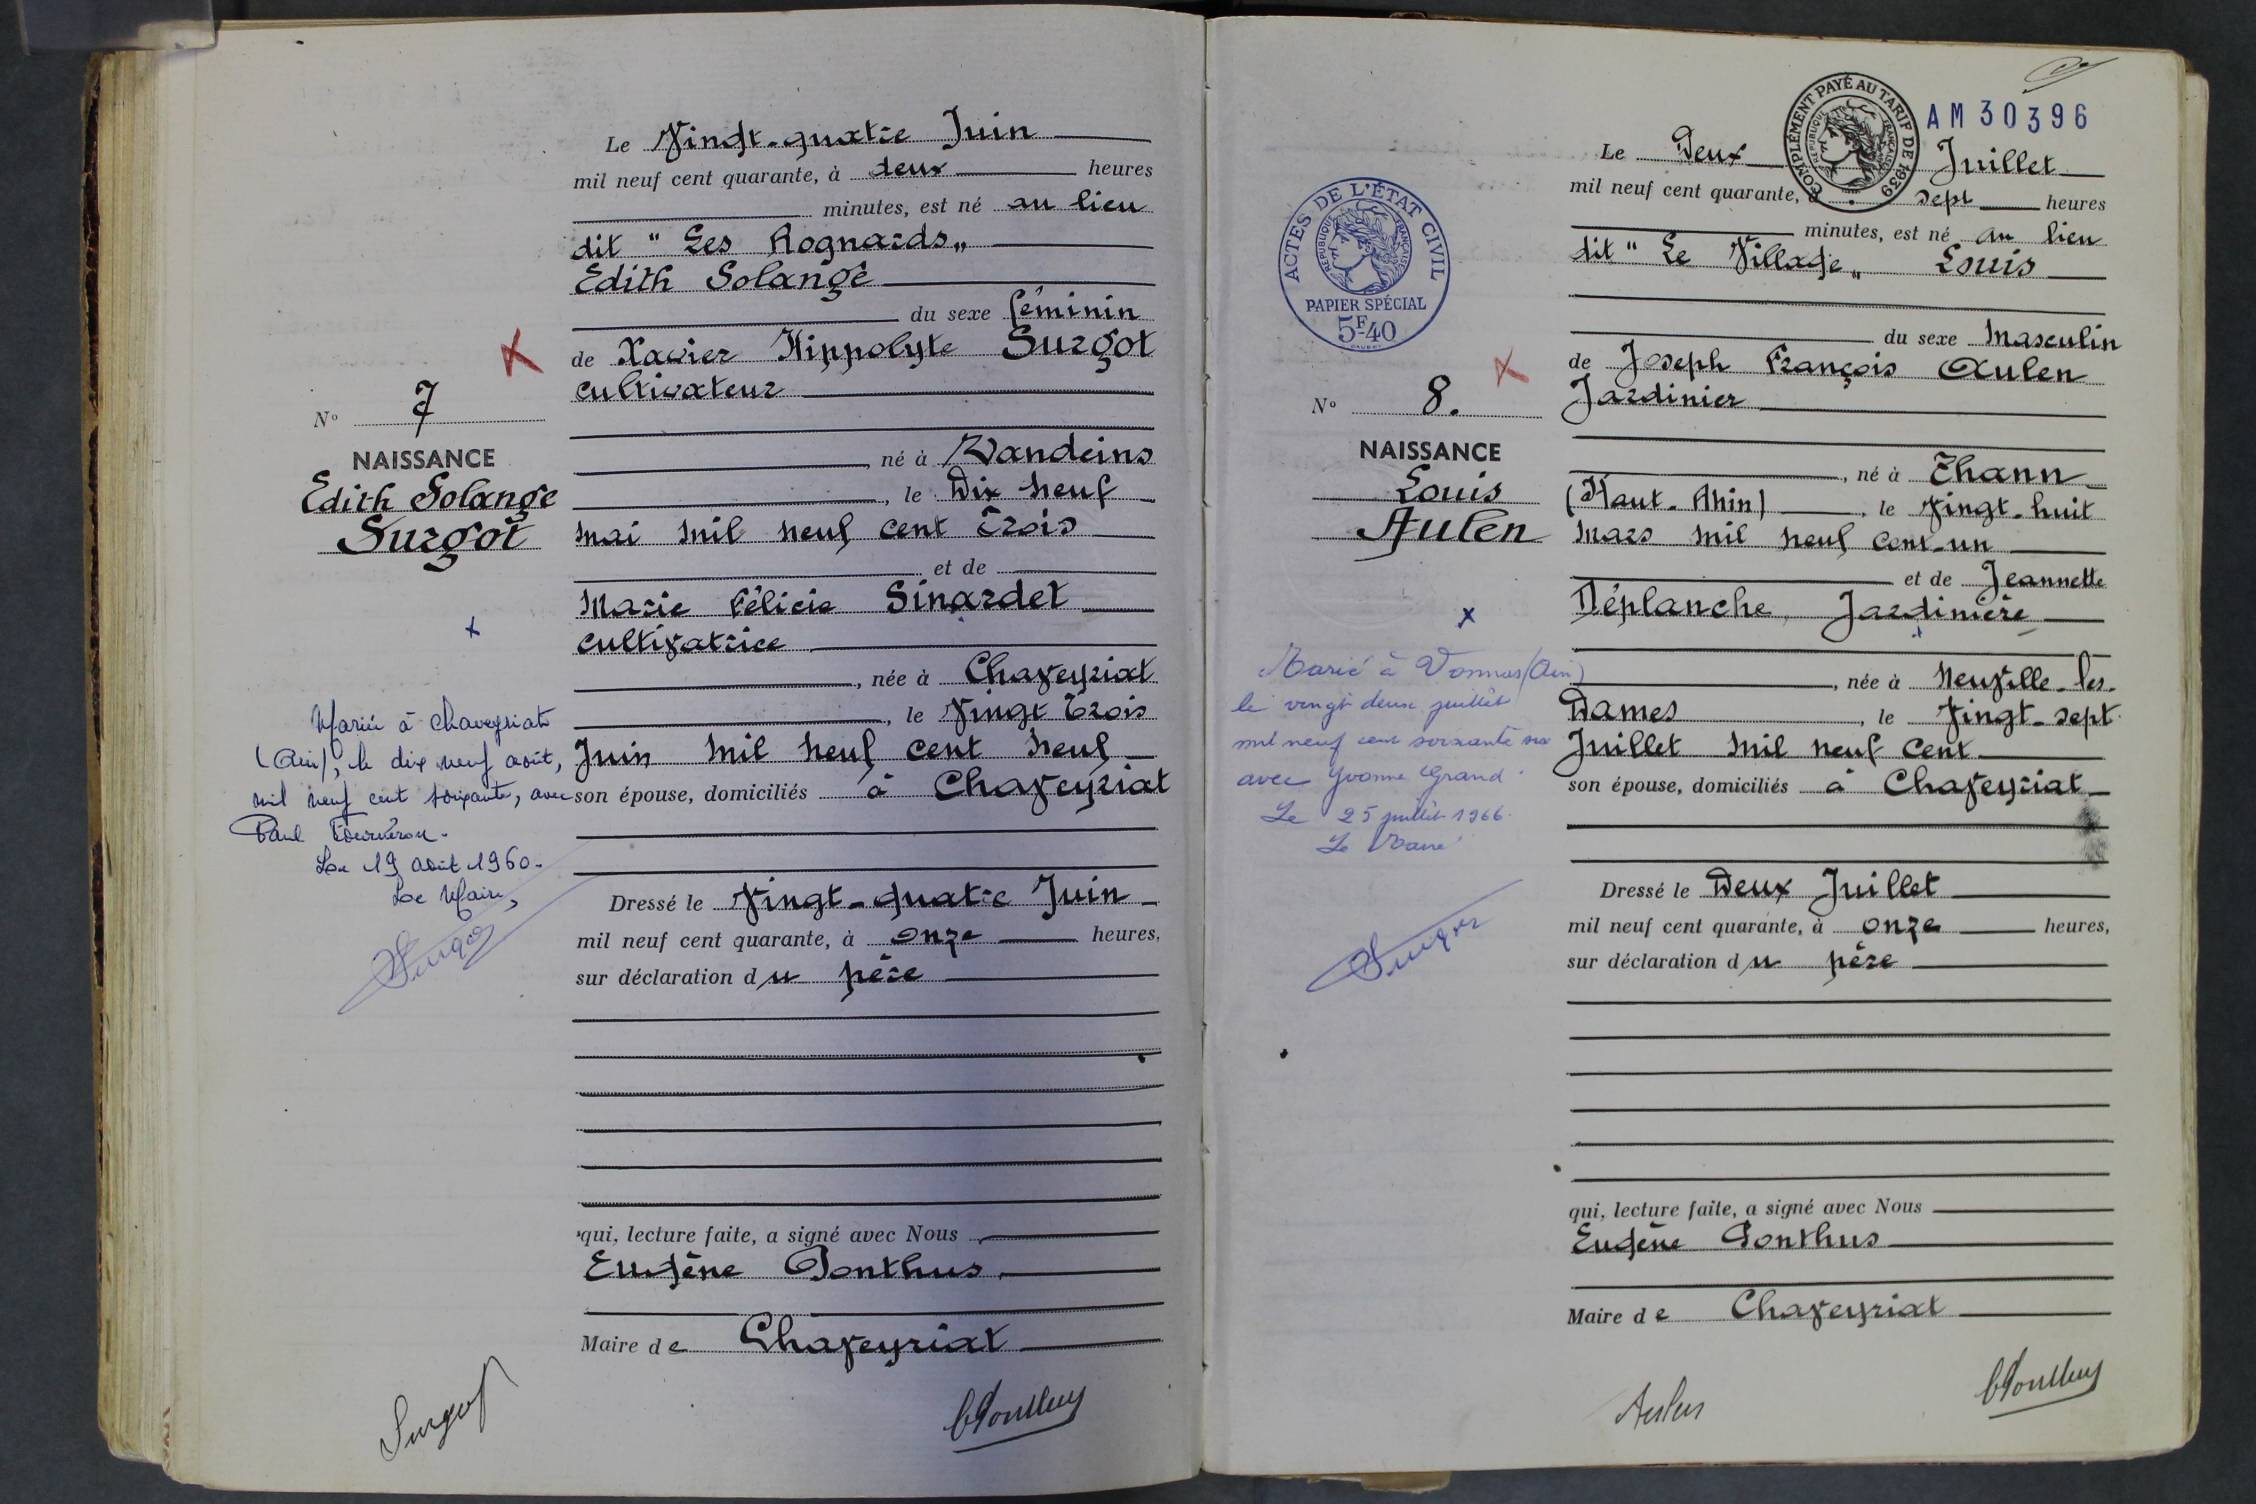 Le Vingt-quatre Juin
mil neuf cent quarante, à deux heures
minutes, est né au lieu
dit " Les Rognards "
Edith Solange
du sexe féminin
de Xavier Hippolyte Surgot
cultivateur
né à Vandeins
, le Dix neuf
Mai mil neuf cent trois
et de
Marie Félicie Sinardet
cultivatrice
, née à Chaveyriat
, le Vingt trois
Juin mil neuf cent neuf
son épouse, domiciliés à Chaveyriat
Dressé le Vingt-quatre Juin
mil neuf cent quarante, à onze heures,
sur déclaration du père
qui, lecture faite, a signé avec Nous
Eugène Ponthus
Maire de Chaveyriat
Surgot
EPonthus
N° 7
NAISSANCE
Edith Solange
Surgot
Mariée à Chaveyriat
(Ain), le dix neuf août,
mil neuf cent soixante, avec
Paul
Le 19 août 1960.
Le Maire,
Surgot
AM 30396
COMPLÉMENT PAYÉ AU TARIF DE 1939
RÉPUBLIQUE FRANÇAISE
Le Deux Juillet
mil neuf cent quarante, à sept heures
minutes, est né au lieu
dit " Le Village " Louis
du sexe Masculin
de Joseph François Aulen
Jardinier
, né à Thann
(Haut-Rhin), le Vingt-huit
Mars mil neuf cent-un
et de Jeannette
Déplanche, Jardinière
, née à Neuville-les-
Dames, le Vingt-sept
Juillet mil neuf cent
son épouse, domiciliés à Chaveyriat
Dressé le Deux Juillet
mil neuf cent quarante, à onze heures,
sur déclaration du père
qui, lecture faite, a signé avec Nous
Eugène Ponthus
Maire de Chaveyriat
Aulen
EPonthus
ACTES DE L'ÉTAT CIVIL
RÉPUBLIQUE FRANÇAISE
PAPIER SPÉCIAL
5F40
N° 8.
NAISSANCE
Louis
Aulen
Marié à Vonnas (Ain)
le vingt deux juillet
mil neuf cent soixante six
avec Yvonne Grand.
Le 25 juillet 1966.
Le Maire
Surgot